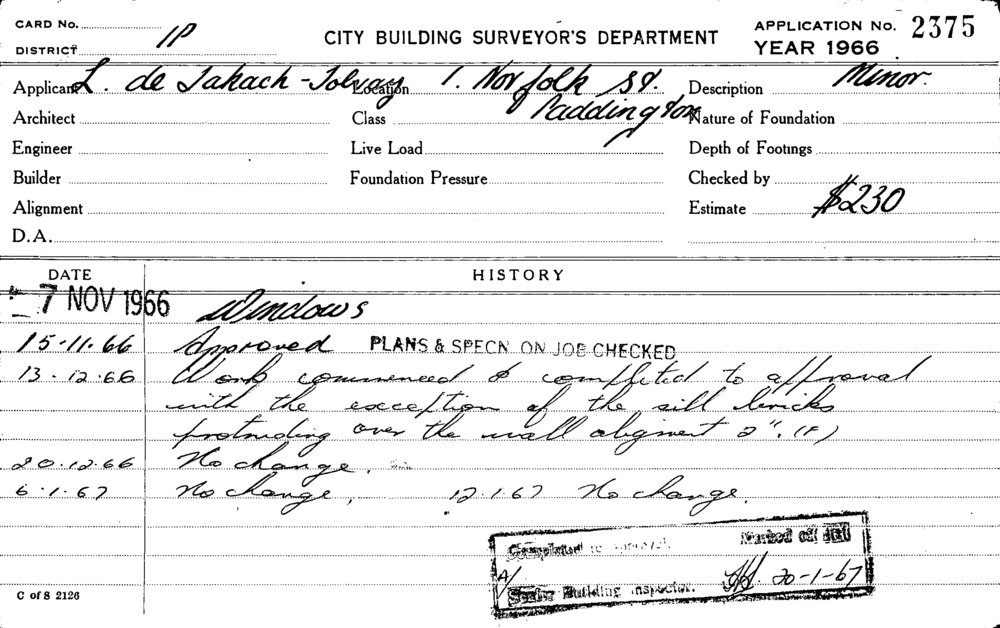 CARD No.
DISTRICT 1P
CITY BUILDING SURVEYOR'S DEPARTMENT
APPLICATION No. 2375
YEAR 1966
Applicant L. de Takach-Tolvay Location 1. Norfolk St. Paddington Description Minor.
Architect Class Nature of Foundation
Engineer Live Load Depth of Footings
Builder Foundation Pressure Checked by
Alignment Estimate $230
D.A.
DATE HISTORY
7 NOV 1966 Windows
15-11-66 Approved PLANS & SPECN ON JOB CHECKED
13-12-66 Work commenced & completed to approval
with the exception of the sill bricks
protruding over the wall aligment 2". (F)
20.12.66 No change.
6.1.67 No change, 12.1.67 No change.
Completed to approval. Marked off
A/ 20-1-67
Senior Building Inspector.
C of S 2126